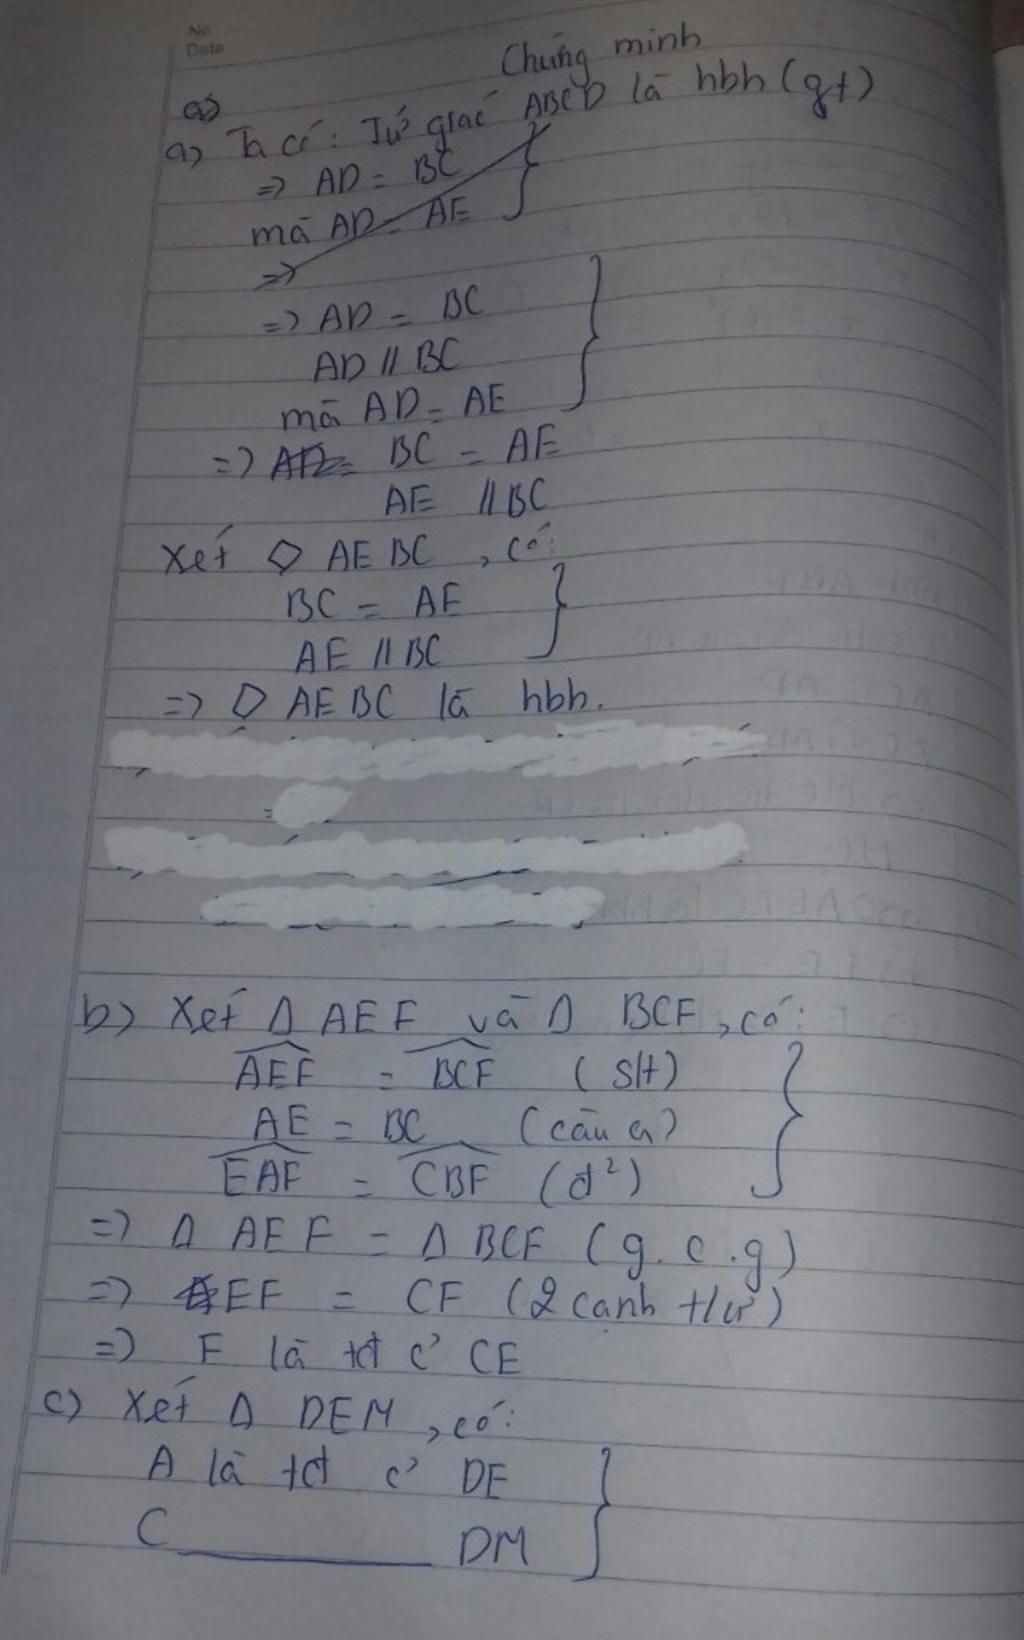 No.
Date
Chứng minh
a)
a) Ta có: Tứ giác ABCD là hbh (gt)
=> AD = BC
mà AD = AE
=>
=> AD = BC
AD // BC
mà AD = AE
=> BC = AE
AE // BC
Xét ◇ AEBC, có:
BC = AE
AE // BC
=> ◇ AEBC là hbh.
b) Xét Δ AEF và Δ BCF, có:
AEF = BCF (slt)
AE = BC (câu a)
EAF = CBF (đ²)
=> Δ AEF = Δ BCF (g.c.g)
=> EF = CF (2 cạnh t/ư)
=> F là tđ c' CE
c) Xét Δ DEM, có:
A là tđ c' DE
C ______ DM